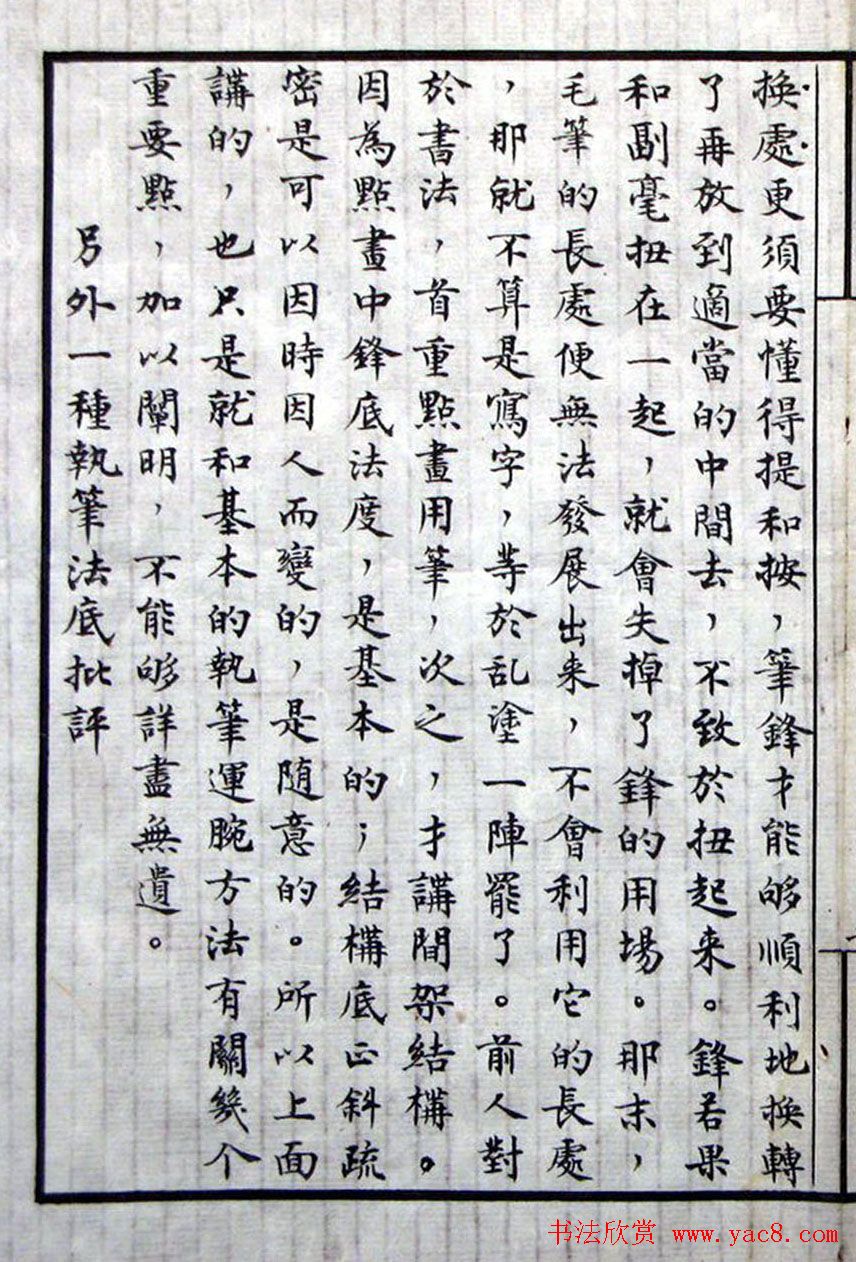 换處更須要懂得提和按，筆鋒才能够順利地换轉
了再放到適當的中間去，不致於扭起来。鋒若果
和副毫扭在一起，就會失掉了鋒的用場。那末，
毛筆的長處便無法發展出来，不會利用它的長處
，那就不算是寫字，等於乱塗一陣罷了。前人對
於書法，首重點畫用筆，次之，才講間架結構。
因為點畫中鋒底法度，是基本的；結構底正斜疏
密是可以因時因人而變的，是随意的。所以上面
講的，也只是就和基本的執筆運腕方法有關幾个
重要點，加以闡明，不能够詳盡無遺。
另外一種執筆法底批評
书法欣赏 www.yac8.com